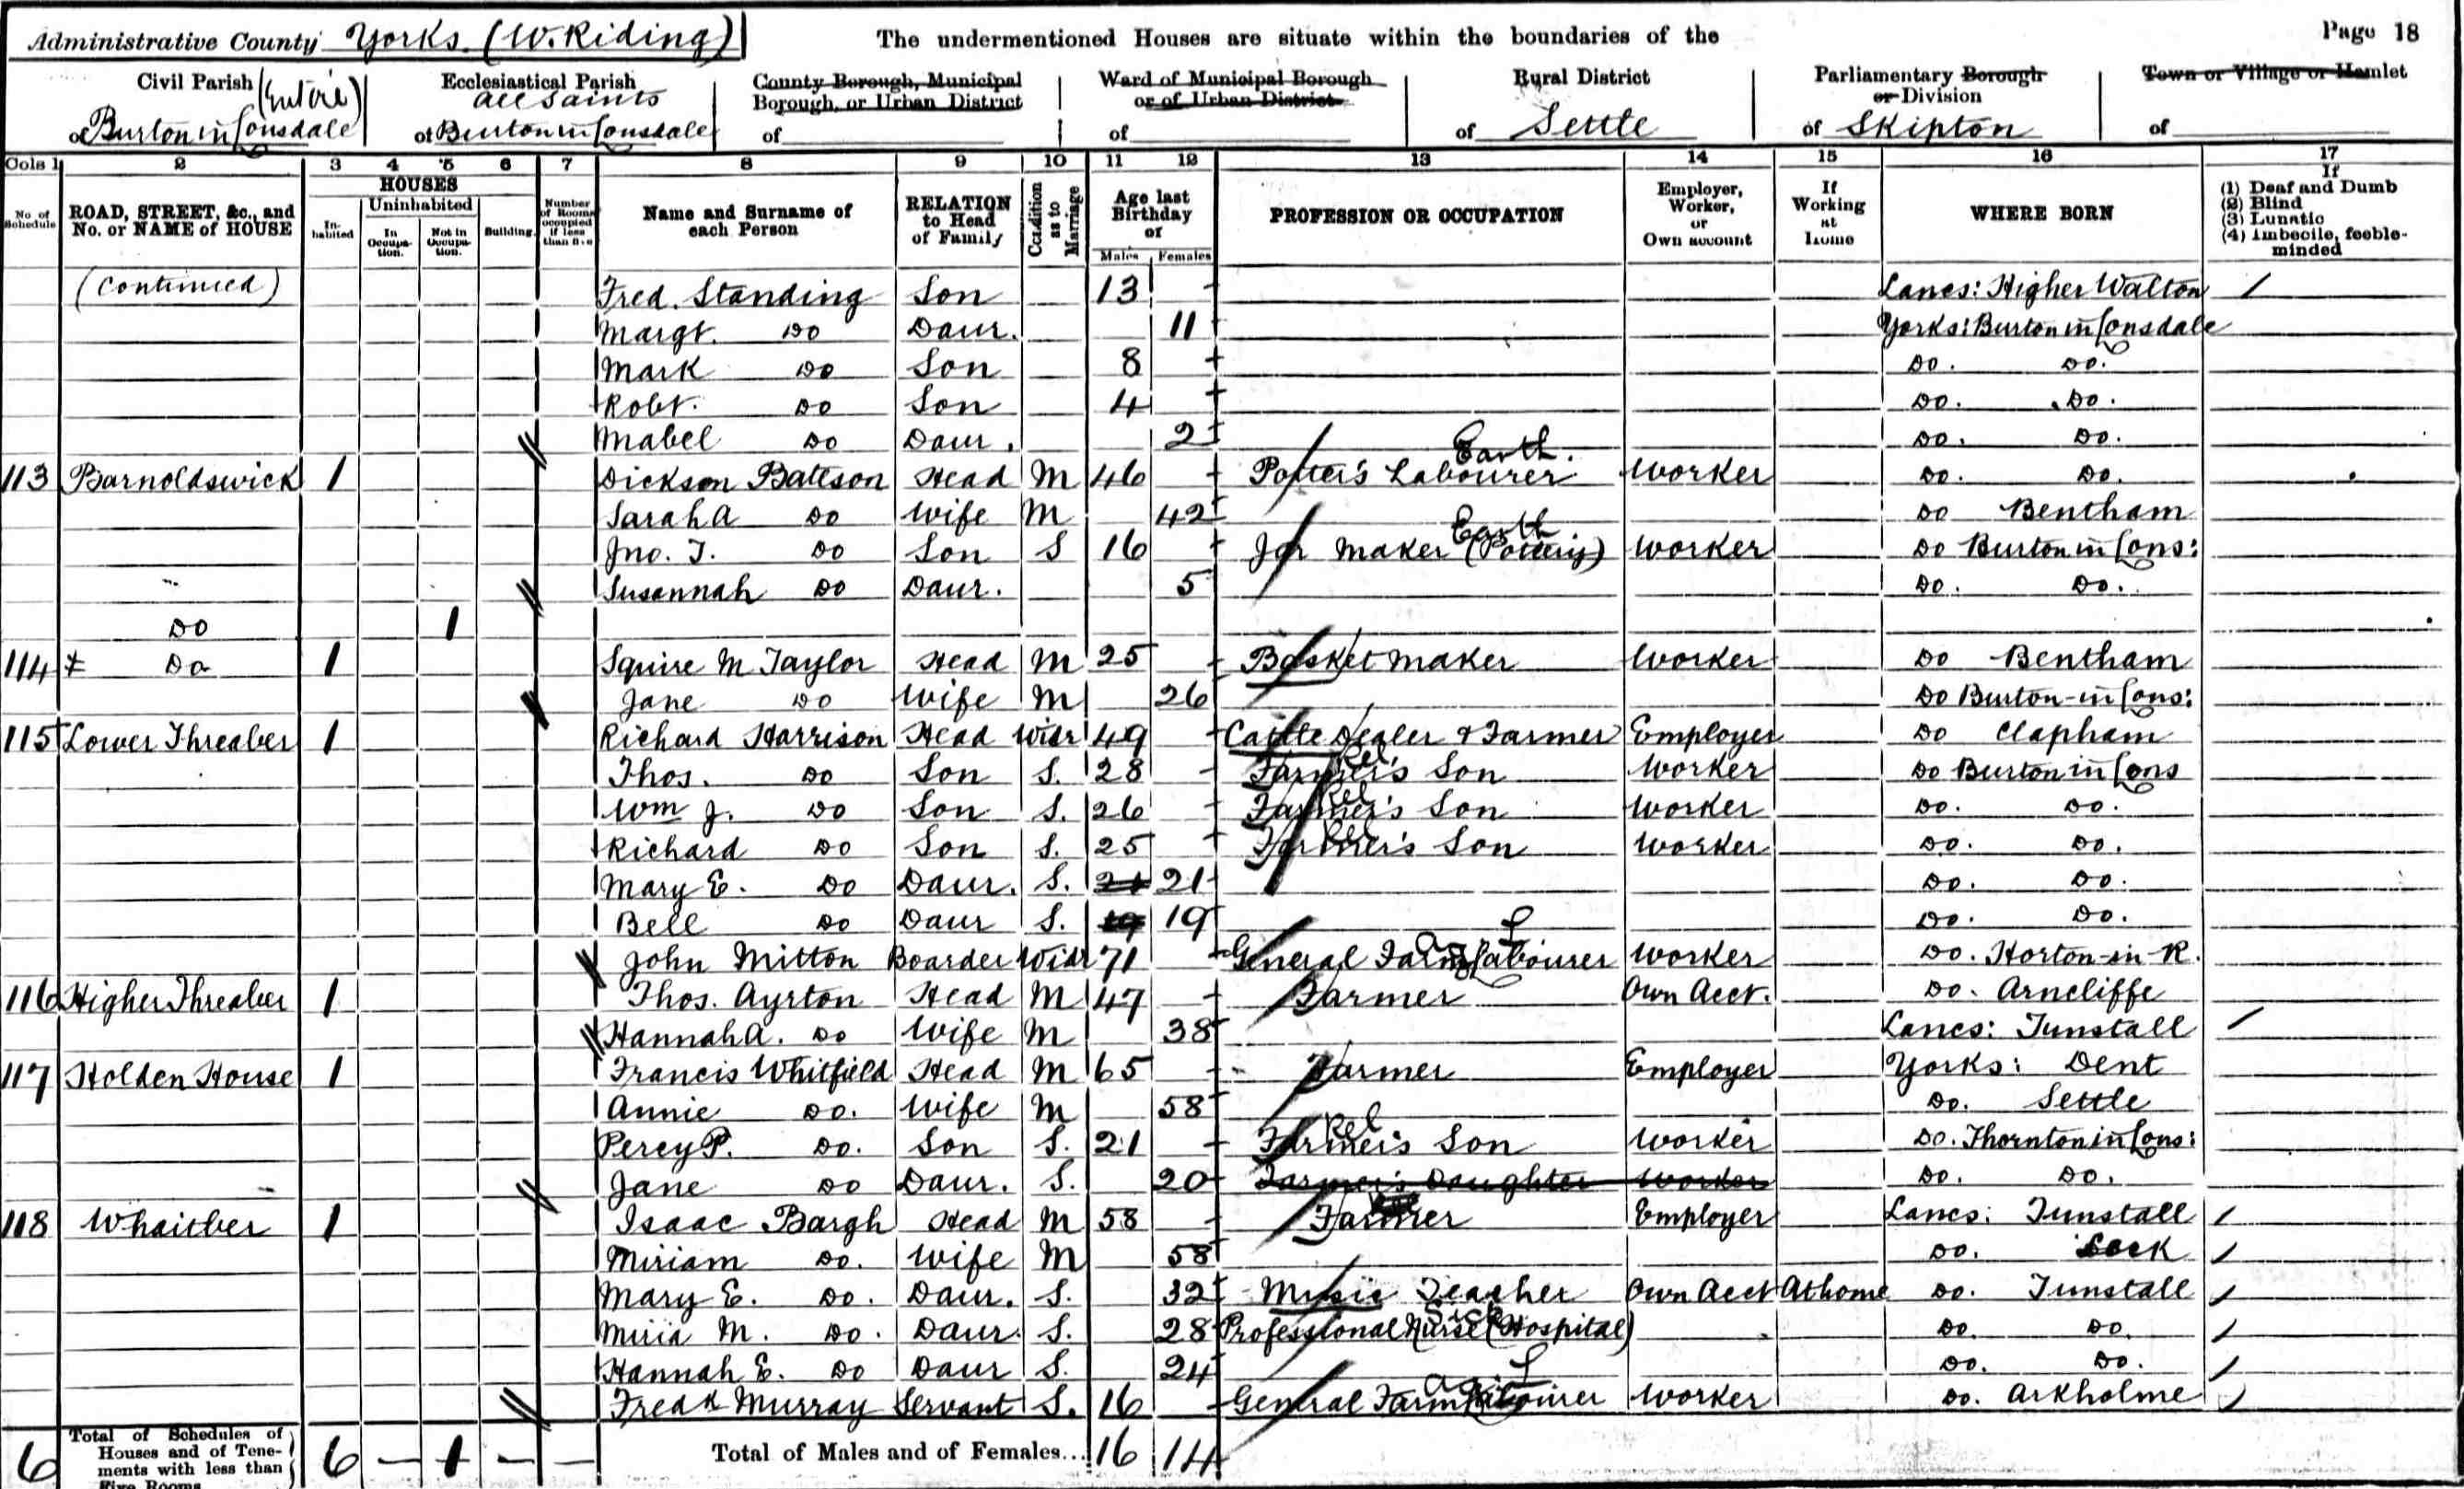 Administrative County Yorks (W. Riding) The undermentioned Houses are situate within the boundaries of the Page 18
Civil Parish (Entire) of Burton in Lonsdale
Ecclesiastical Parish All Saints of Burton in Lonsdale
County Borough, Municipal Borough, or Urban District of
Ward of Municipal Borough or of Urban District of
Rural District of Settle
Parliamentary Borough or Division of Skipton
Town or Village or Hamlet of
Cols 1 2 3 4 5 6 7 8 9 10 11 12 13 14 15 16 17
No. of Schedule
ROAD, STREET, &c., and No. or NAME of HOUSE
HOUSES
Inhabited
Uninhabited
In Occupation.
Not in Occupation.
Building.
Number of Rooms occupied if less than five
Name and Surname of each Person
RELATION to Head of Family
Condition as to Marriage
Age last Birthday of
Males Females
PROFESSION OR OCCUPATION
Employer, Worker, or Own account
If Working at Home
WHERE BORN
If
(1) Deaf and Dumb
(2) Blind
(3) Lunatic
(4) Imbecile, feeble-minded
(Continued) Fred. Standing Son 13 Lancs: Higher Walton
Margt. Do Daur. 11 Yorks: Burton in Lonsdale
Mark Do Son 8 Do. Do.
Robt. Do Son 4 Do. Do.
Mabel Do Daur. 2 Do. Do.
113 Barnoldswick 1 Dickson Bateson Head M 46 Potter's Labourer Earth. Worker Do. Do.
Sarah A Do Wife M 42 Do Bentham
Jno. T. Do Son S 16 Jar Maker (Pottery) Earth Worker Do Burton in Lons:
Susannah Do Daur. 5 Do. Do.
Do 1
114 Do 1 Squire M Taylor Head M 25 Basket Maker Worker Do Bentham
Jane Do Wife M 26 Do Burton-in Lons:
115 Lower Threaber 1 Richard Harrison Head Widr 49 Cattle Dealer & Farmer Employer Do Clapham
Thos. Do Son S. 28 Farmer's Son Rel Worker Do Burton in Lons
Wm J. Do Son S. 26 Farmer's Son Rel Worker Do. Do.
Richard Do Son S. 25 Farmer's Son Rel Worker Do. Do.
Mary E. Do Daur. S. 21 21 Do. Do.
Bell Do Daur S. 19 19 Do. Do.
John Mitton Boarder Widr 71 General Farm Labourer Worker Do. Horton-in-R.
116 Higher Threaber 1 Thos. Ayrton Head M 47 Farmer Own Acct. Do. Arncliffe
Hannah A. Do Wife M 38 Lancs: Tunstall
117 Holden House 1 Francis Whitfield Head M 65 Farmer Employer Yorks: Dent
Annie Do. Wife M 58 Do. Settle
Percy P. Do. Son S. 21 Farmer's Son Rel Worker Do. Thornton in Lons:
Jane Do Daur. S. 20 Farmer's Daughter Worker Do. Do.
118 Whaitber 1 Isaac Bargh Head M 58 Farmer Employer Lancs: Tunstall
Miriam Do. Wife M 58 Do. Leck
Mary E. Do. Daur. S. 32 Music Teacher Own Acct At home Do. Tunstall
Miria M. Do. Daur. S. 28 Professional Nurse (Hospital) Sick Do. Do.
Hannah E. Do Daur S. 24 Do. Do.
Fredk Murray Servant S. 16 General Farm Labourer Ag L Worker Do. Arkholme
6 Total of Schedules of Houses and of Tenements with less than Five Rooms 6 – 1 – – Total of Males and of Females... 16 14